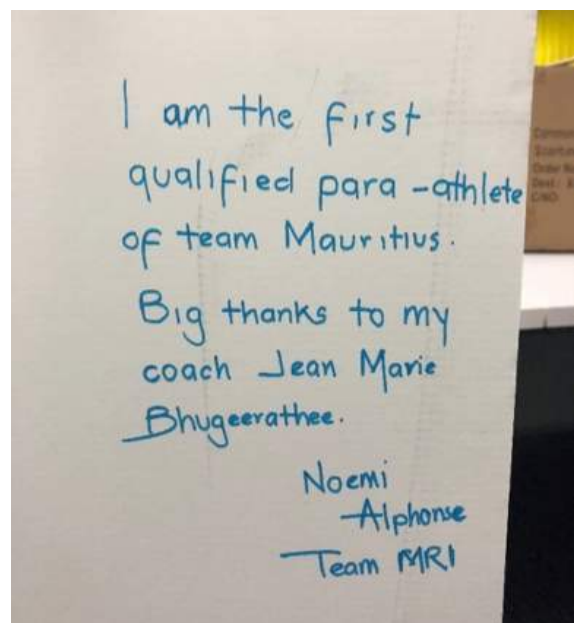 I am the first
qualified para-athlete
of team Mauritius.
Big thanks to my
coach Jean Marie
Bhugeerathee.
Noemi
Alphonse
Team MRI